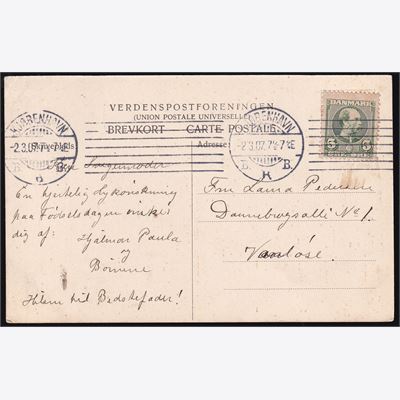 VERDENSPOSTFORENINGEN
(UNION POSTALE UNIVERSELLE)
BREVKORT CARTE POSTALE
Adresse:
KJØBENHAVN
-2.3.07. 7¼-7½E
B. B.
K
KJØBENHAVN
-2.3.07. 7¼-7½E
B. B.
K
DANMARK
5 5
En hjertelig Lykønskning
paa Fødselsdagen ønskes
dig af: Hjalmar Paula
og
Børnene
Hilsen til Bedstefader!
Fru Laura Pedersen
Dannebrogsallé No 1.
Vanløse.